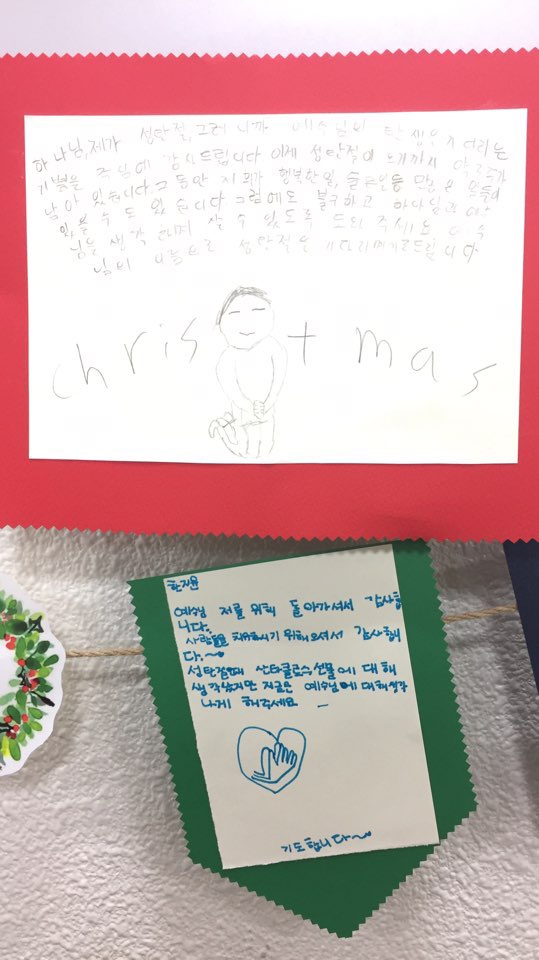 하나님, 제가 성탄절, 그러니까 예수님의 탄생을 기다리는
기쁨을 주심에 감사드립니다 이제 성탄절이 오기까지 약
남아 있습니다 그동안 저희가 행복한일, 슬픈일등 많은 일들이
있을 수도 있습니다. 그럼에도 불구하고 하나님과 예수
님을 생각하며 살 수 있도록 도와 주세요 예수
님의 이름으로 성탄절을 기다리며기도드립니다
christmas
한지윤
예수님 저를 위해 돌아가셔서 감사합
니다.
사람들을 치유하시기 위해오셔서 감사합니
다.~
성탄절때 산타클로스선물에 대해
생각났지만 지금은 예수님에 대해생각
나게 해주세요
기도합니다~